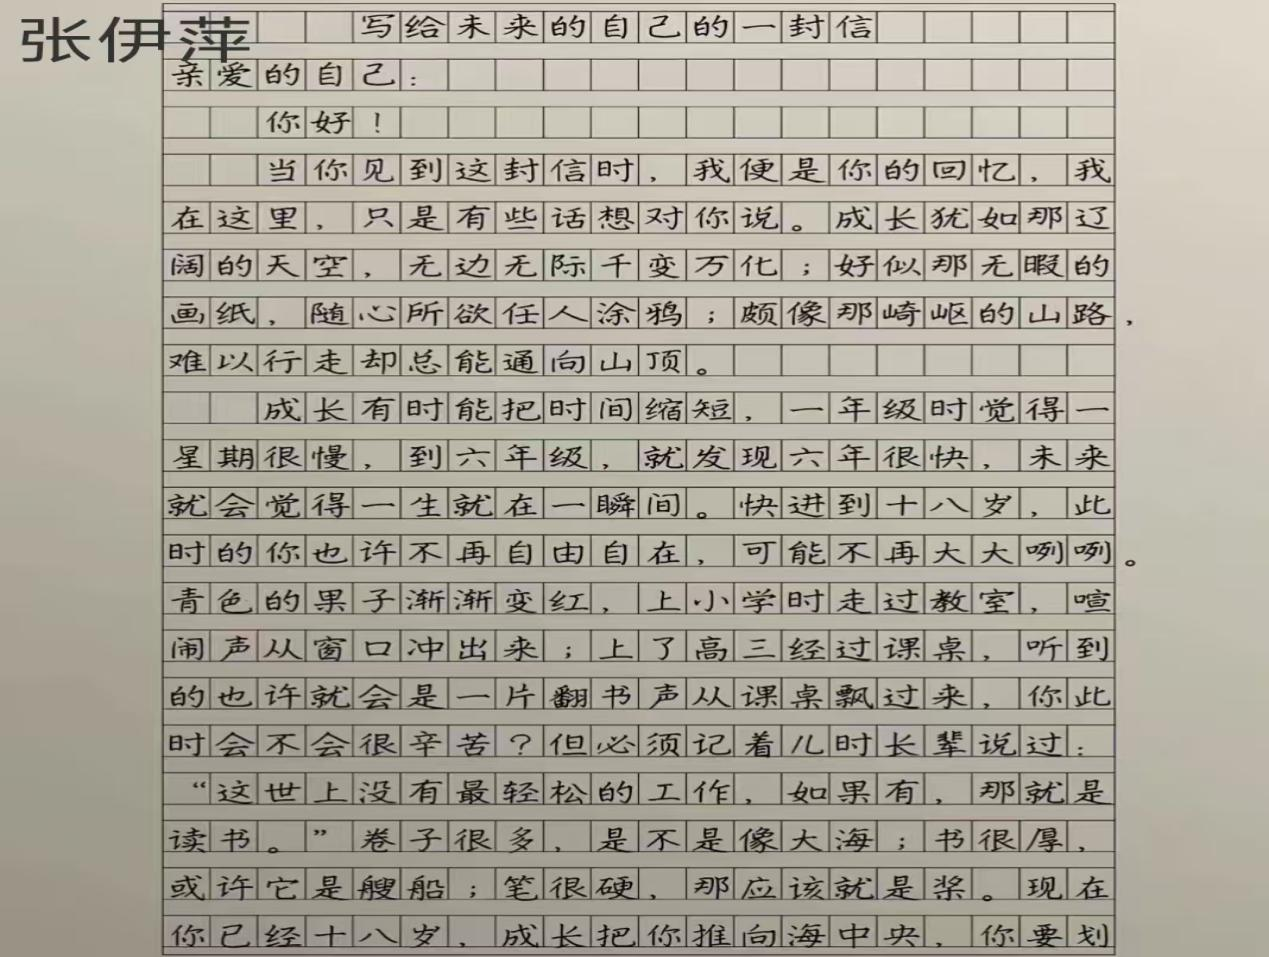 张伊萍
写给未来的自己的一封信
亲爱的自己：
你好！
当你见到这封信时，我便是你的回忆，我
在这里，只是有些话想对你说。成长犹如那辽
阔的天空，无边无际千变万化；好似那无暇的
画纸，随心所欲任人涂鸦；颇像那崎岖的山路，
难以行走却总能通向山顶。
成长有时能把时间缩短，一年级时觉得一
星期很慢，到六年级，就发现六年很快，未来
就会觉得一生就在一瞬间。快进到十八岁，此
时的你也许不再自由自在，可能不再大大咧咧。
青色的果子渐渐变红，上小学时走过教室，喧
闹声从窗口冲出来；上了高三经过课桌，听到
的也许就会是一片翻书声从课桌飘过来，你此
时会不会很辛苦？但必须记着儿时长辈说过：
“这世上没有最轻松的工作，如果有，那就是
读书。”卷子很多，是不是像大海；书很厚，
或许它是艘船；笔很硬，那应该就是桨。现在
你已经十八岁，成长把你推向海中央，你要划